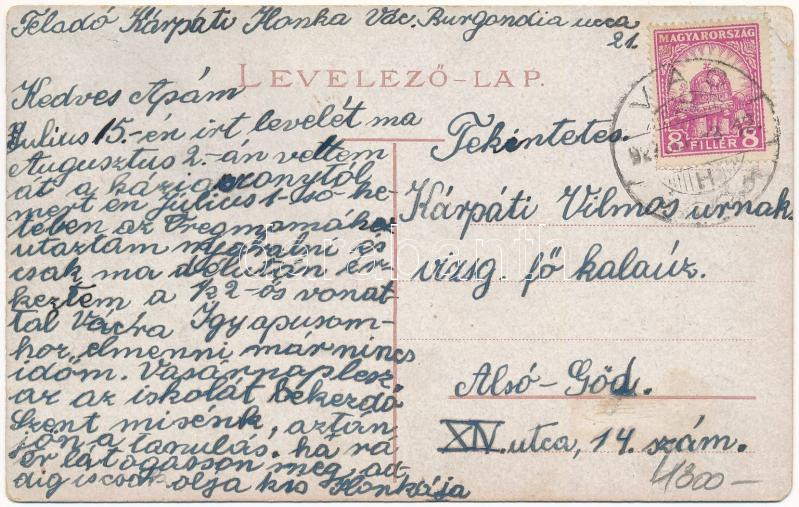 Feladó Kárpáti Ilonka Vác. Burgondia ucca
21.
MAGYARORSZÁG
8 FILLÉR 8
LEVELEZŐ-LAP.
Kedves Apám
Julius 15.-én irt levelét ma
Augusztus 2.-án vettem
át a háziasszonytól
mert én Julius 1-ső he-
tében az Öregmamához
utaztam nyaralni és
csak ma délután ér-
keztem a 1/2 2-ős vonat-
tal Vácra Igy apusom-
hoz elmenni már nincs
időm. Vasárnap lesz
az az iskolát bekezdő
Szent misénk, aztán
jön a tanulás. ha rá-
ér látogasson meg, ad-
dig is csókolja kis Ilonkája
Tekintetes.
Kárpáti Vilmos urnak
vizsg. fő kalaúz.
Alsó-Göd.
XIV. utca, 14. szám.
4300-
darabanth